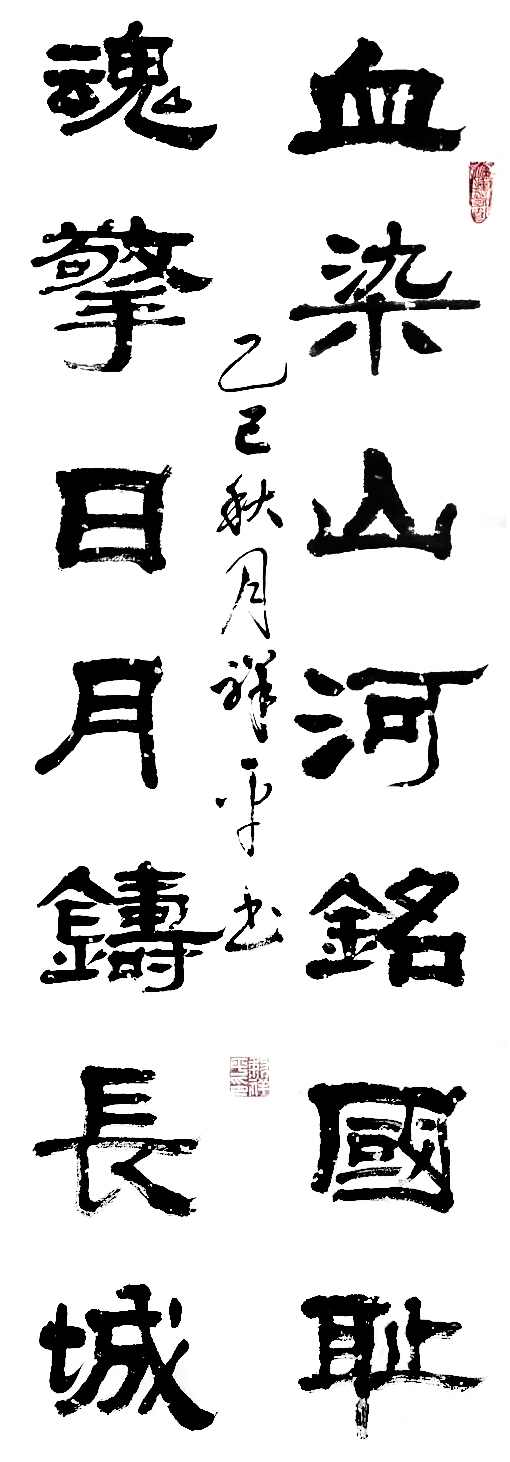 血染山河銘國耻
魂擎日月鑄長城
乙巳秋月祥平书